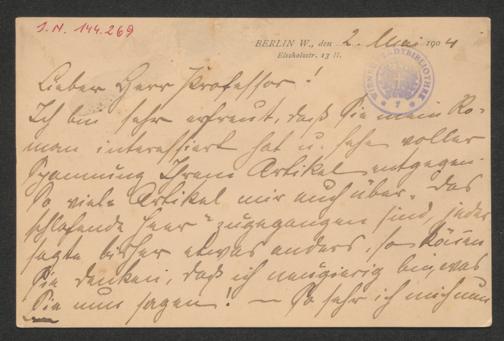 I.N. 144.269
BERLIN W., den 2. Mai 1904
Eisenacherstr. 13 II.
WIENER STADTBIBLIOTHEK
Lieber Herr Professor!
Ich bin sehr erfreut, daß Sie mein Ro-
man interessiert hat u. sehe voller
Spannung Ihrem Artikel entgegen.
So viele Artikel mir auch über „Das
schlafende Heer" zugegangen sind, jeder
sagte bisher etwas anders, so können
Sie denken, daß ich neugierig bin, was
Sie nun sagen! — So sehr ich mich nun